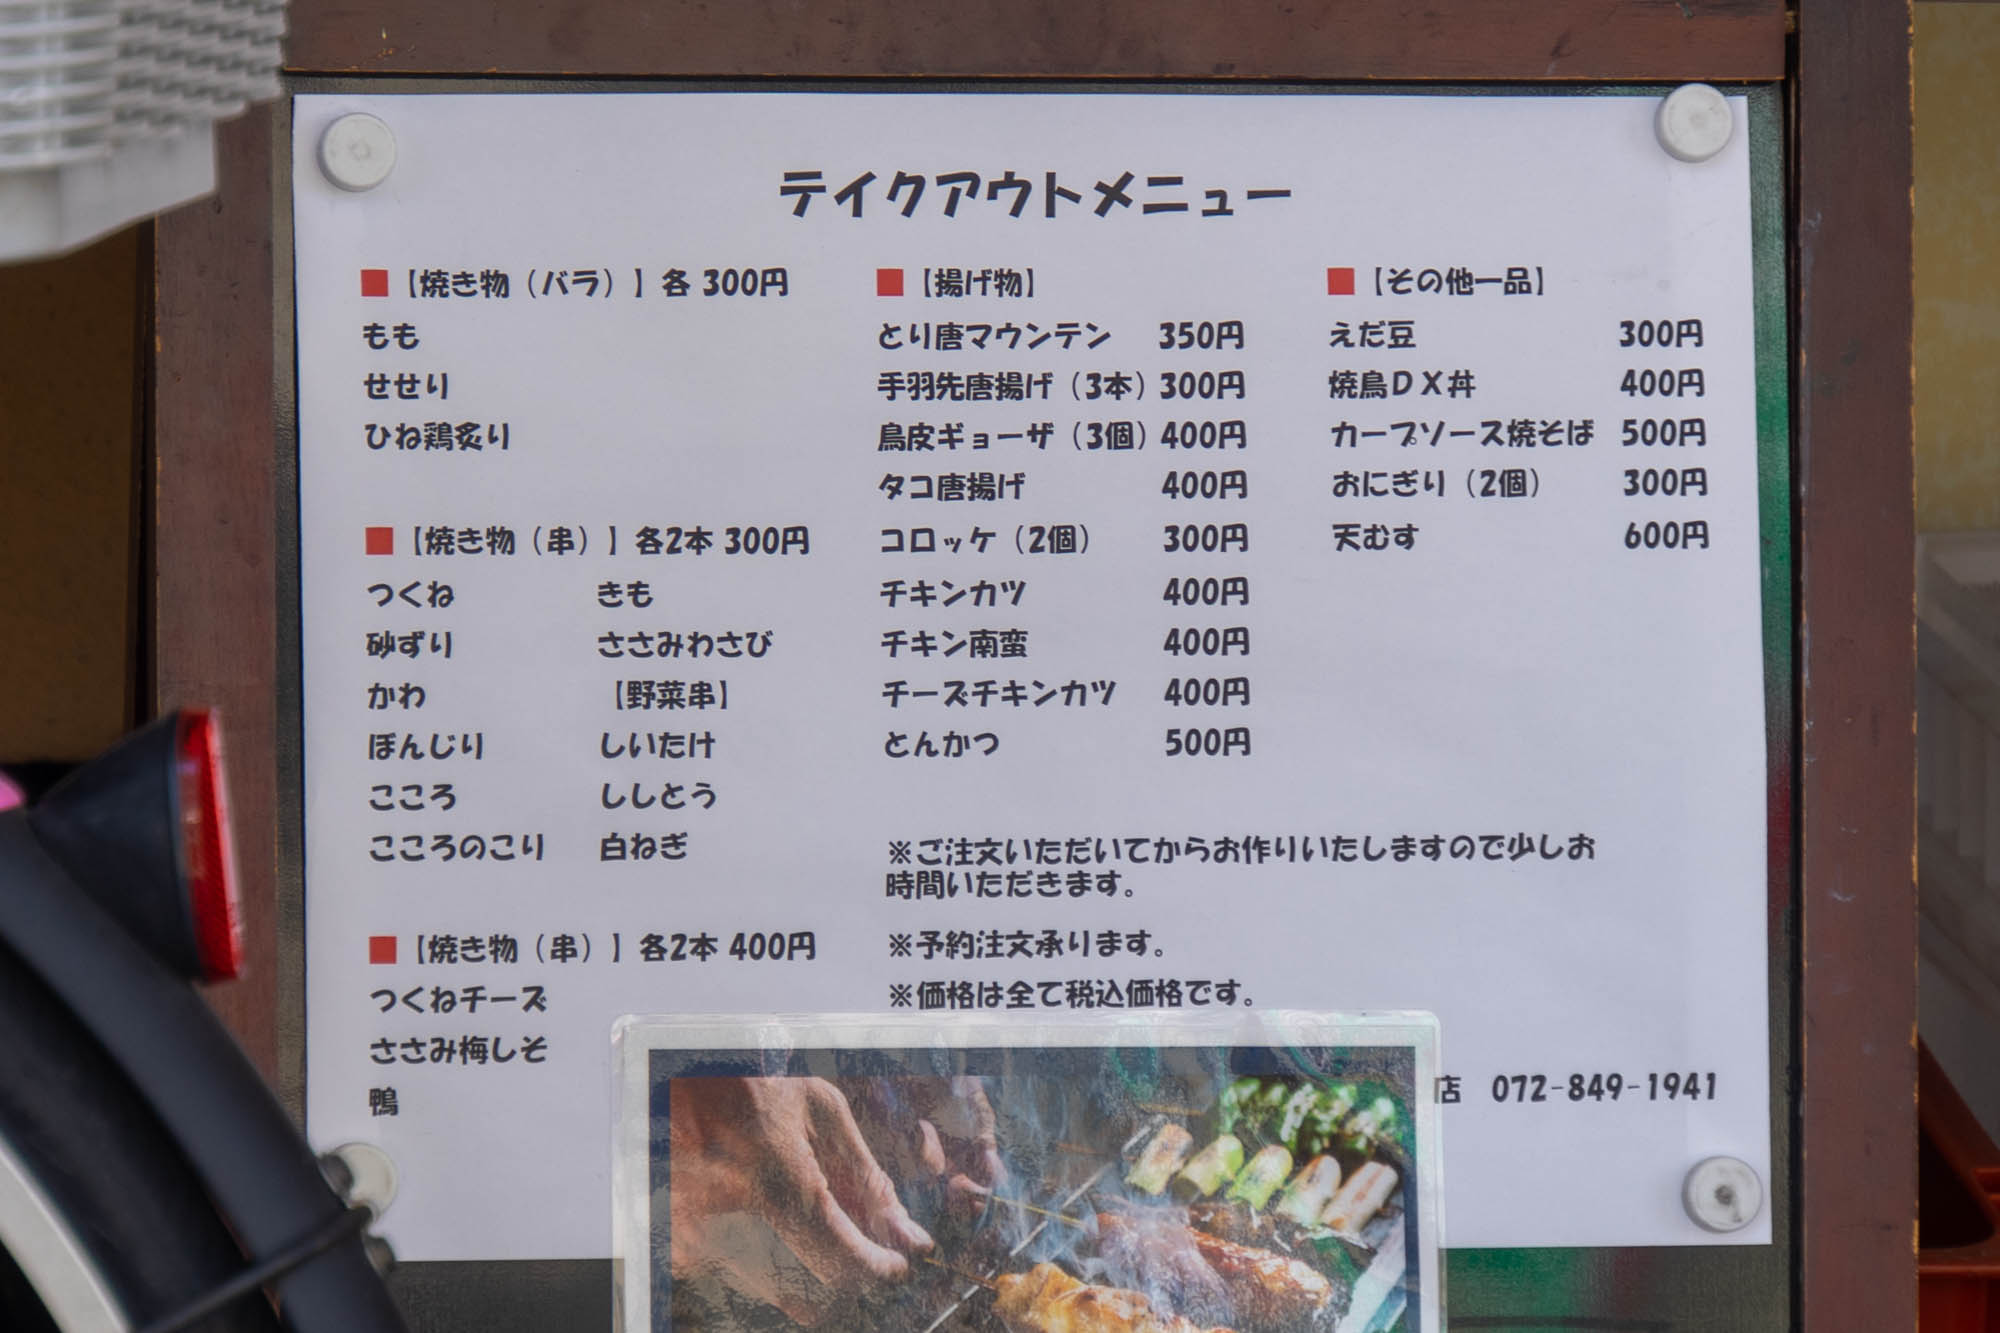 テイクアウトメニュー
■【焼き物（バラ）】各 300円
もも
せせり
ひね鶏炙り
■【焼き物（串）】各2本 300円
つくね　きも
砂ずり　ささみわさび
かわ　【野菜串】
ぼんじり　しいたけ
こころ　ししとう
こころのこり　白ねぎ
■【焼き物（串）】各2本 400円
つくねチーズ
ささみ梅しそ
鴨
■【揚げ物】
とり唐マウンテン　350円
手羽先唐揚げ（3本）300円
鳥皮ギョーザ（3個）400円
タコ唐揚げ　400円
コロッケ（2個）　300円
チキンカツ　400円
チキン南蛮　400円
チーズチキンカツ　400円
とんかつ　500円
■【その他一品】
えだ豆　300円
焼鳥ＤＸ丼　400円
カープソース焼そば　500円
おにぎり（2個）　300円
天むす　600円
※ご注文いただいてからお作りいたしますので少しお
時間いただきます。
※予約注文承ります。
※価格は全て税込価格です。
店　072-849-1941